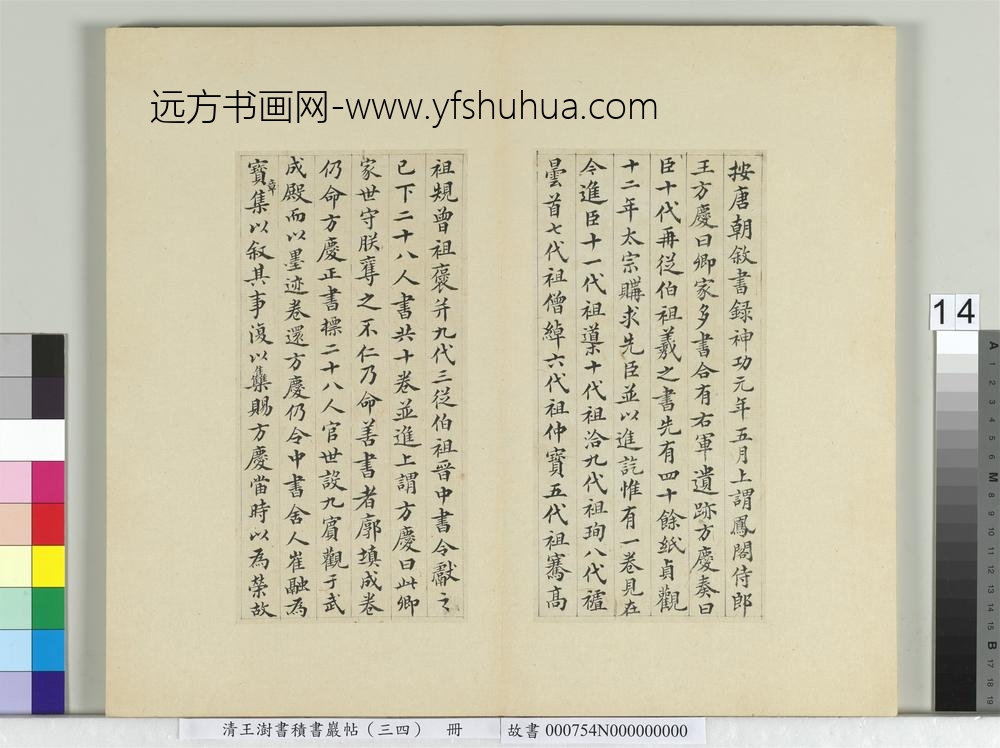 远方书画网-www.yfshuhua.com
按唐朝敘書録神功元年五月上謂鳳閣侍郎
王方慶曰卿家多書合有右軍遺跡方慶奏曰
臣十代再從伯祖羲之書先有四十餘紙貞觀
十二年太宗購求先臣並以進訖惟有一卷見在
今進臣十一代祖導十代祖洽九代祖珣八代
曇首七代祖僧綽六代祖仲寶五代祖騫高
祖規曾祖褒并九代三從伯祖晉中書令獻之
已下二十八人書共十卷並進上謂方慶曰此卿
家世守朕奪之不仁乃命善書者廓填成卷
仍命方慶正書標二十八人官世設九賓觀于武
成殿而以墨迹卷還方慶仍令中書舍人崔融為
寶章集以叙其事復以集賜方慶當時以為榮故
14
A 1 2 3 4 5 6 M 8 9 10 11 12 13 14 15 B 17 18 19
清王澍書積書巖帖（三四） 冊
故書 000754N000000000